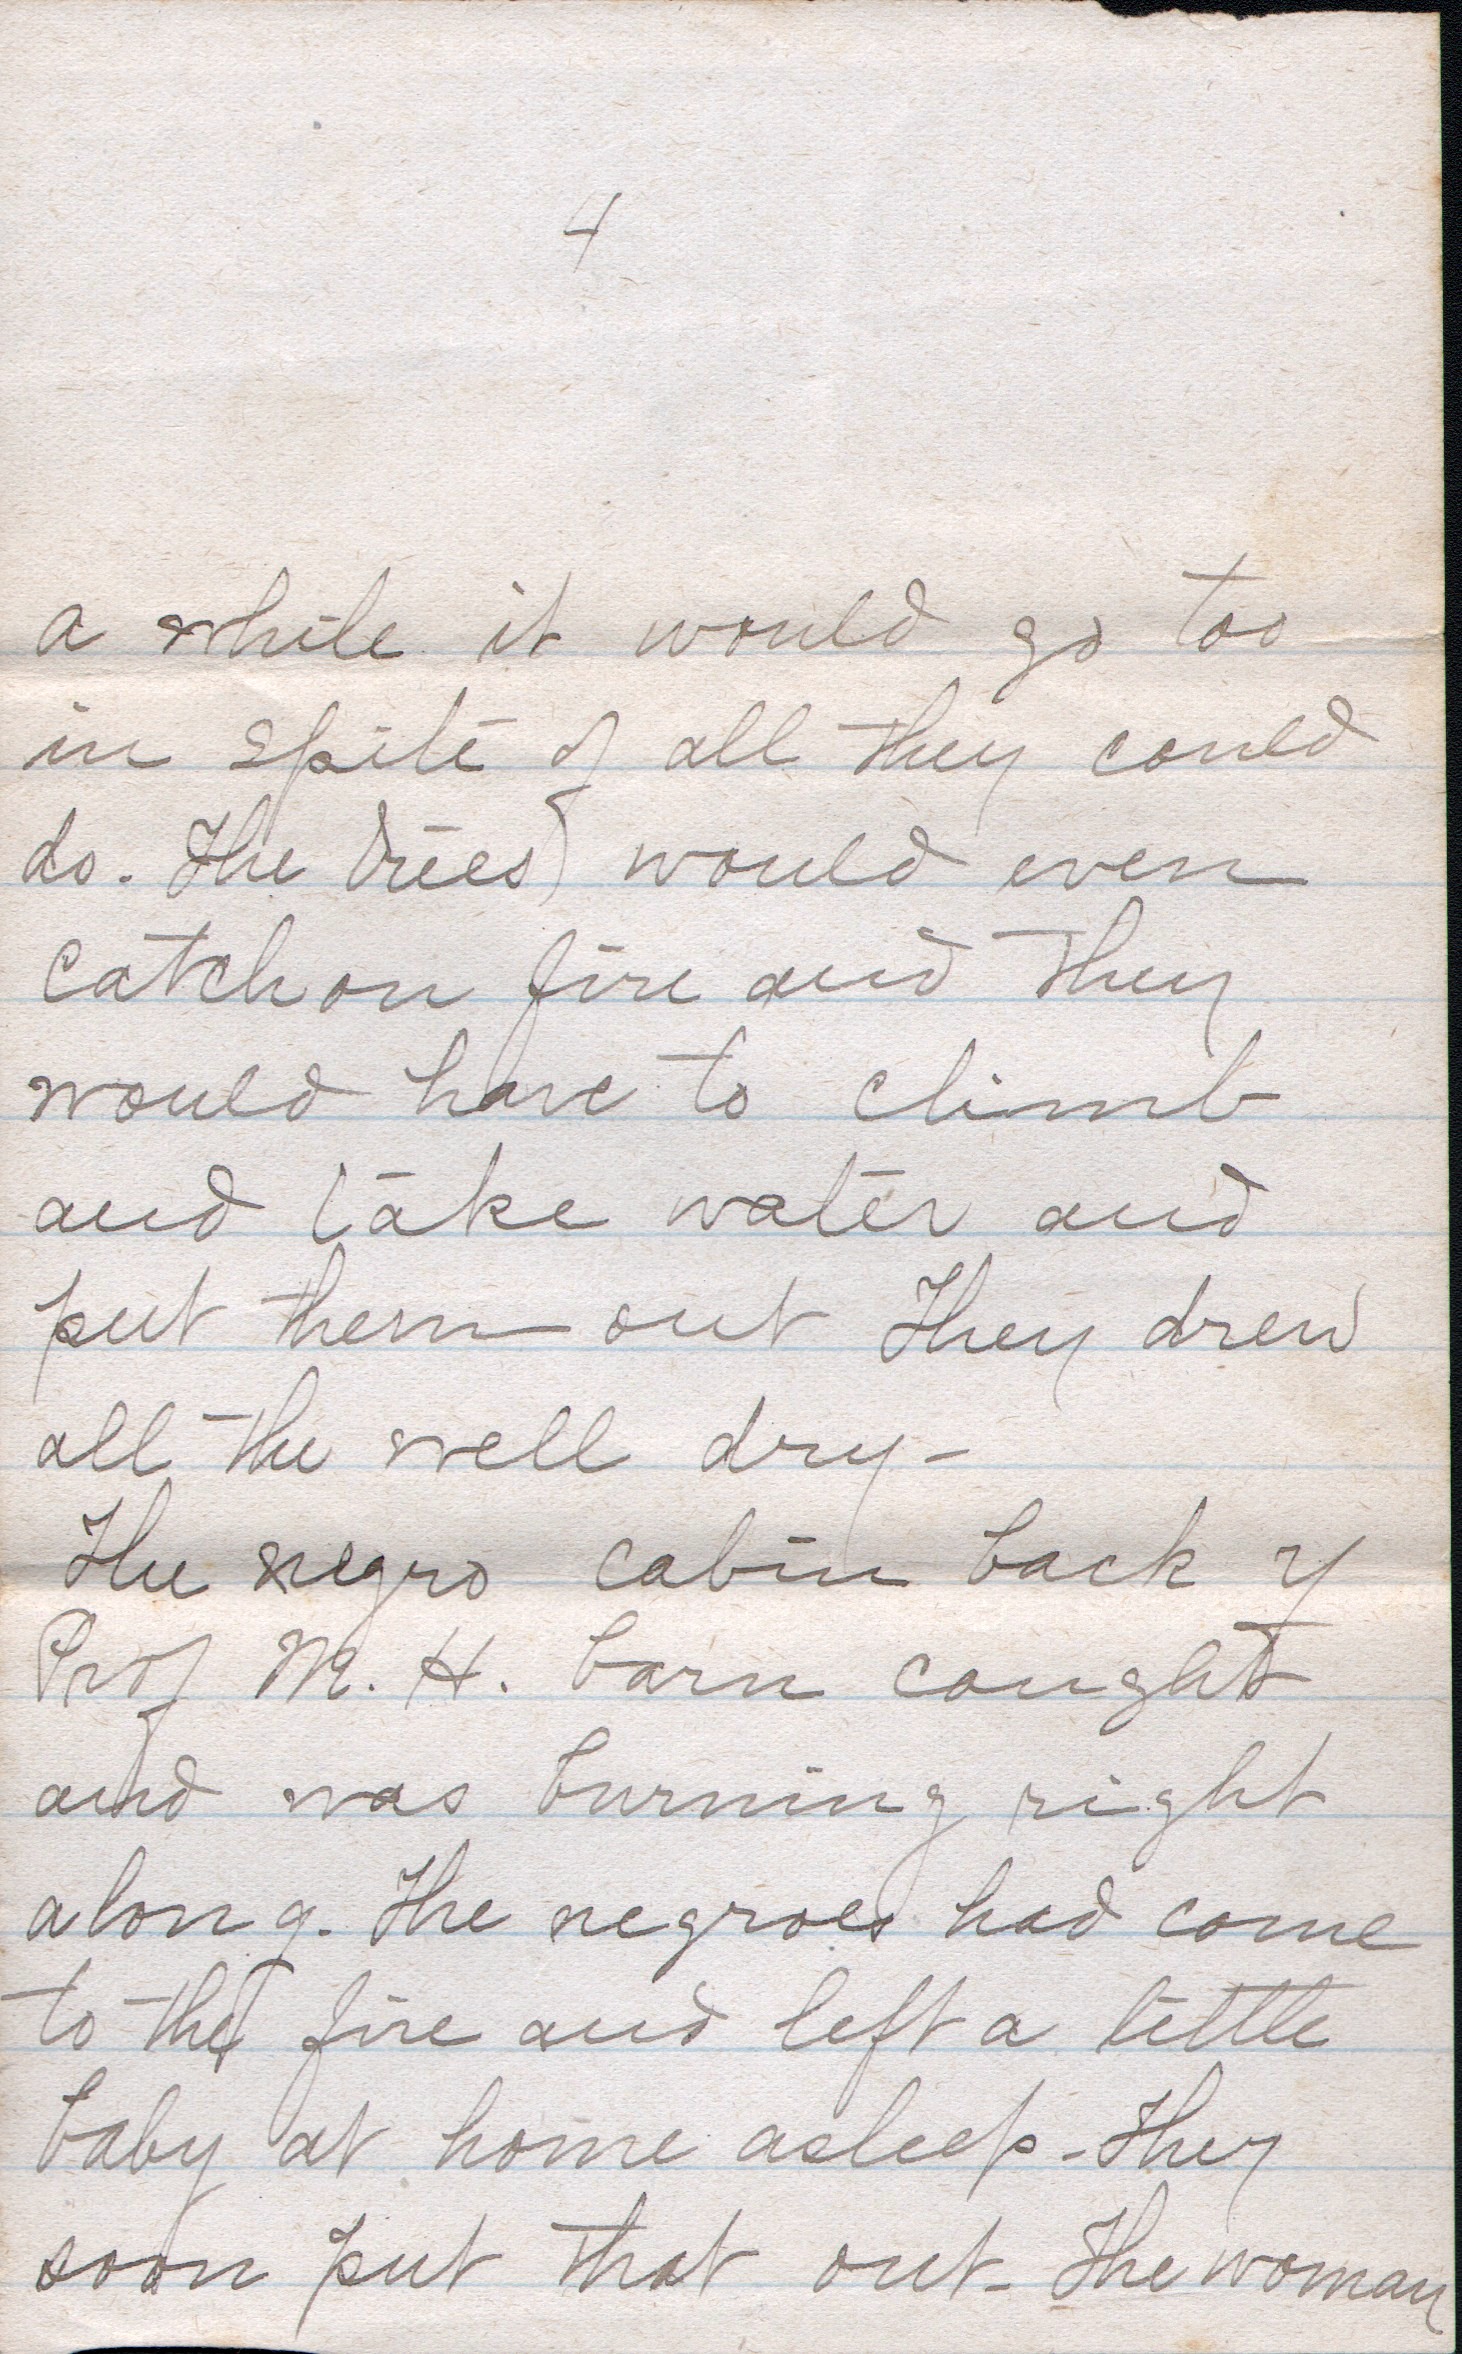 4
a while it would go too
in spite of all they could
do. The trees would even
catch on fire and they
would have to climb
and take water and
put them out They drew
all the well dry -
The negro cabin back of
Prof M. H. barn caught
and was burning right
along. The negroes had come
to the fire and left a little
baby at home asleep - They
soon put that out - The woman